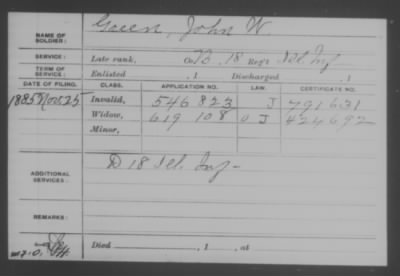 NAME OF SOLDIER: Green, John W.
SERVICE: Late rank, Co. B, 18 Reg't Ill. Inf
TERM OF SERVICE: Enlisted , 1 Discharged , 1
DATE OF FILING. CLASS. APPLICATION NO. LAW. CERTIFICATE NO.
1885 Nov. 25 Invalid, 546 823 J 791631
Widow, 619 108 O J 424692
Minor,
ADDITIONAL SERVICES: D 18 Ill. Inf-
REMARKS:
Died , 1 , at